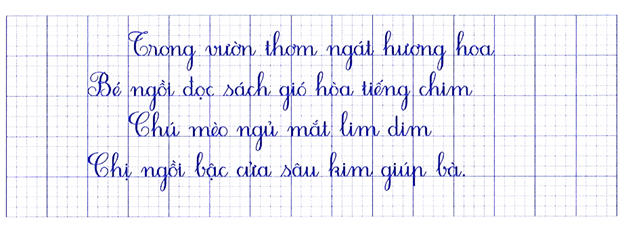 Trong vườn thơm ngát hương hoa
Bé ngồi đọc sách gió hòa tiếng chim
Chú mèo ngủ mắt lim dim
Chị ngồi bậc cửa sâu kim giúp bà.